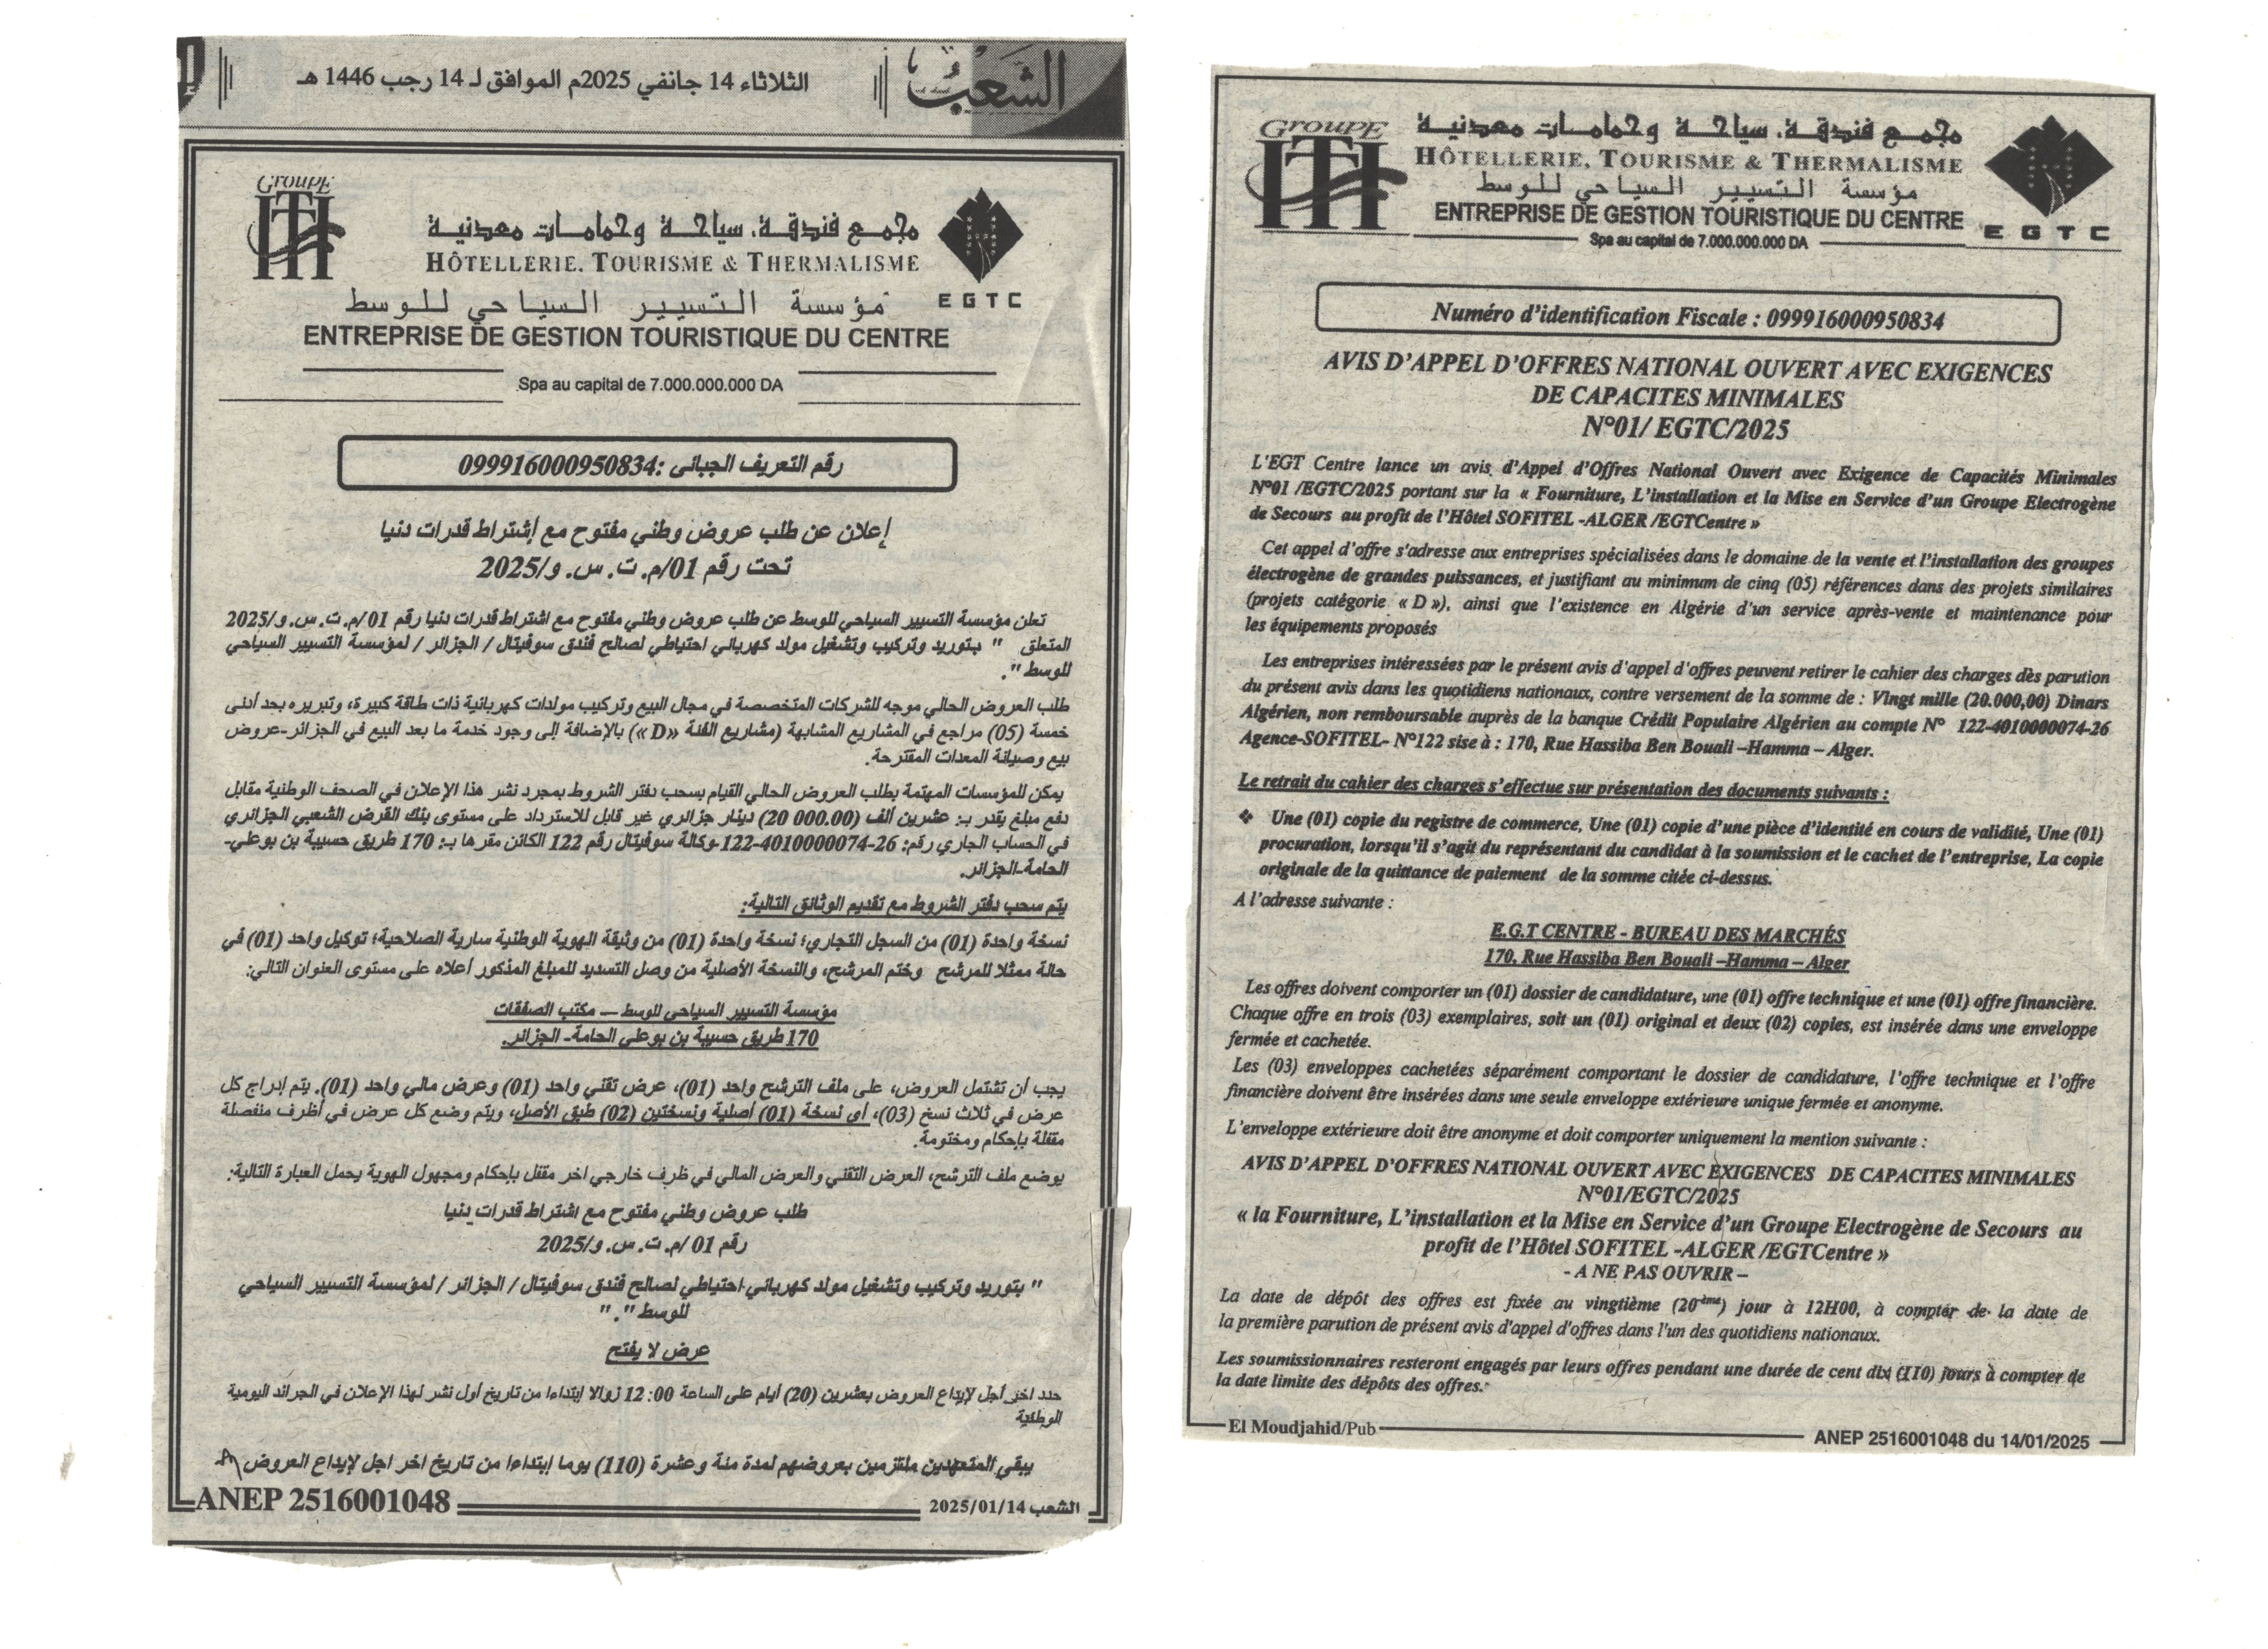 الشعب
الثلاثاء 14 جانفي 2025م الموافق لـ 14 رجب 1446 هـ
Groupe
HTT
مجمع فندقة، سياحة وحمامات معدنية
HÔTELLERIE, TOURISME & THERMALISME
مؤسسة التسيير السياحي للوسط
EGTC
ENTREPRISE DE GESTION TOURISTIQUE DU CENTRE
Spa au capital de 7.000.000.000 DA
رقم التعريف الجبائى :099916000950834
إعلان عن طلب عروض وطني مفتوح مع إشتراط قدرات دنيا
تحت رقم 01/م. ت. س. و/2025
تعلن مؤسسة التسيير السياحي للوسط عن طلب عروض وطني مفتوح مع اشتراط قدرات دنيا رقم 01/م.ت.س.و/2025
المتعلق " بتوريد وتركيب وتشغيل مولد كهربائي احتياطي لصالح فندق سوفيتال / الجزائر / لمؤسسة التسيير السياحي
للوسط ".
طلب العروض الحالي موجه للشركات المتخصصة في مجال البيع وتركيب مولدات كهربائية ذات طاقة كبيرة، وتبريره بحد أدنى
خمسة (05) مراجع في المشاريع المشابهة (مشاريع الفئة «D») بالإضافة إلى وجود خدمة ما بعد البيع في الجزائر-عروض
بيع وصيانة المعدات المقترحة.
يمكن للمؤسسات المهتمة بطلب العروض الحالي القيام بسحب دفتر الشروط بمجرد نشر هذا الإعلان في الصحف الوطنية مقابل
دفع مبلغ يقدر بـ: عشرين ألف (20 000.00) دينار جزائري غير قابل للاسترداد على مستوى بنك القرض الشعبي الجزائري
في الحساب الجاري رقم: 26-4010000074-122-وكالة سوفيتال رقم 122 الكائن مقرها بـ: 170 طريق حسيبة بن بوعلي-
الحامة-الجزائر.
يتم سحب دفتر الشروط مع تقديم الوثائق التالية:
نسخة واحدة (01) من السجل التجاري؛ نسخة واحدة (01) من وثيقة الهوية الوطنية سارية الصلاحية؛ توكيل واحد (01) في
حالة ممثلا للمرشح وختم المرشح، والنسخة الأصلية من وصل التسديد للمبلغ المذكور أعلاه على مستوى العنوان التالي:
مؤسسة التسيير السياحى للوسط – مكتب الصفقات
170 طريق حسيبة بن بوعلى الحامة- الجزائر.
يجب أن تشتمل العروض، على ملف الترشح واحد (01)، عرض تقني واحد (01) وعرض مالي واحد (01). يتم إدراج كل
عرض في ثلاث نسخ (03)، أي نسخة (01) أصلية ونسختين (02) طبق الأصل، ويتم وضع كل عرض في أظرف منفصلة
مقفلة بإحكام ومختومة.
يوضع ملف الترشح، العرض التقني والعرض المالي في ظرف خارجي اخر مقفل بإحكام ومجهول الهوية يحمل العبارة التالية:
طلب عروض وطني مفتوح مع اشتراط قدرات دنيا
رقم 01 /م. ت. س. و/2025
" بتوريد وتركيب وتشغيل مولد كهربائي احتياطي لصالح فندق سوفيتال / الجزائر / لمؤسسة التسيير السياحي
للوسط "."
عرض لا يفتح
حدد اخر أجل لإيداع العروض بعشرين (20) أيام على الساعة 00: 12 زوالا إبتداءا من تاريخ أول نشر لهذا الإعلان في الجرائد اليومية
الوطنية
يبقى المتعهدين ملتزمين بعروضهم لمدة مئة وعشرة (110) يوما إبتداءا من تاريخ اخر اجل لإيداع العروض
ANEP 2516001048
الشعب 2025/01/14
Groupe
HTT
مجمع فندقة، سياحة وحمامات معدنية
HÔTELLERIE, TOURISME & THERMALISME
مؤسسة التسيير السياحي للوسط
ENTREPRISE DE GESTION TOURISTIQUE DU CENTRE
Spa au capital de 7.000.000.000 DA
EGTC
Numéro d'identification Fiscale : 099916000950834
AVIS D'APPEL D'OFFRES NATIONAL OUVERT AVEC EXIGENCES
DE CAPACITES MINIMALES
N°01/ EGTC/2025
L'EGT Centre lance un avis d'Appel d'Offres National Ouvert avec Exigence de Capacités Minimales
N°01 /EGTC/2025 portant sur la « Fourniture, L'installation et la Mise en Service d'un Groupe Electrogène
de Secours au profit de l'Hôtel SOFITEL -ALGER /EGTCentre »
Cet appel d'offre s'adresse aux entreprises spécialisées dans le domaine de la vente et l'installation des groupes
électrogène de grandes puissances, et justifiant au minimum de cinq (05) références dans des projets similaires
(projets catégorie « D »), ainsi que l'existence en Algérie d'un service après-vente et maintenance pour
les équipements proposés
Les entreprises intéressées par le présent avis d'appel d'offres peuvent retirer le cahier des charges dès parution
du présent avis dans les quotidiens nationaux, contre versement de la somme de : Vingt mille (20.000,00) Dinars
Algérien, non remboursable auprès de la banque Crédit Populaire Algérien au compte N° 122-4010000074-26
Agence-SOFITEL- N°122 sise à : 170, Rue Hassiba Ben Bouali –Hamma – Alger.
Le retrait du cahier des charges s'effectue sur présentation des documents suivants :
❖ Une (01) copie du registre de commerce, Une (01) copie d'une pièce d'identité en cours de validité, Une (01)
procuration, lorsqu'il s'agit du représentant du candidat à la soumission et le cachet de l'entreprise, La copie
originale de la quittance de paiement de la somme citée ci-dessus.
A l'adresse suivante :
E.G.T CENTRE - BUREAU DES MARCHÉS
170, Rue Hassiba Ben Bouali –Hamma – Alger
Les offres doivent comporter un (01) dossier de candidature, une (01) offre technique et une (01) offre financière.
Chaque offre en trois (03) exemplaires, soit un (01) original et deux (02) copies, est insérée dans une enveloppe
fermée et cachetée.
Les (03) enveloppes cachetées séparément comportant le dossier de candidature, l'offre technique et l'offre
financière doivent être insérées dans une seule enveloppe extérieure unique fermée et anonyme.
L'enveloppe extérieure doit être anonyme et doit comporter uniquement la mention suivante :
AVIS D'APPEL D'OFFRES NATIONAL OUVERT AVEC EXIGENCES DE CAPACITES MINIMALES
N°01/EGTC/2025
« la Fourniture, L'installation et la Mise en Service d'un Groupe Electrogène de Secours au
profit de l'Hôtel SOFITEL -ALGER /EGTCentre »
- A NE PAS OUVRIR –
La date de dépôt des offres est fixée au vingtième (20ème) jour à 12H00, à compter de la date de
la première parution de présent avis d'appel d'offres dans l'un des quotidiens nationaux.
Les soumissionnaires resteront engagés par leurs offres pendant une durée de cent dix (110) jours à compter de
la date limite des dépôts des offres.
El Moudjahid/Pub
ANEP 2516001048 du 14/01/2025